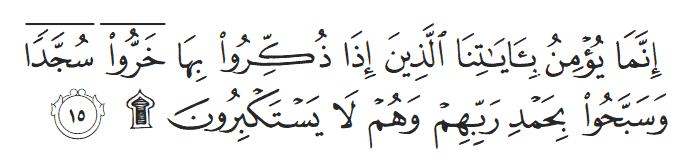 إِنَّمَا يُؤۡمِنُ بِـَٔايَٰتِنَا ٱلَّذِينَ إِذَا ذُكِّرُواْ بِهَا خَرُّواْۤ سُجَّدٗا
وَسَبَّحُواْ بِحَمۡدِ رَبِّهِمۡ وَهُمۡ لَا يَسۡتَكۡبِرُونَ ۩ ١٥